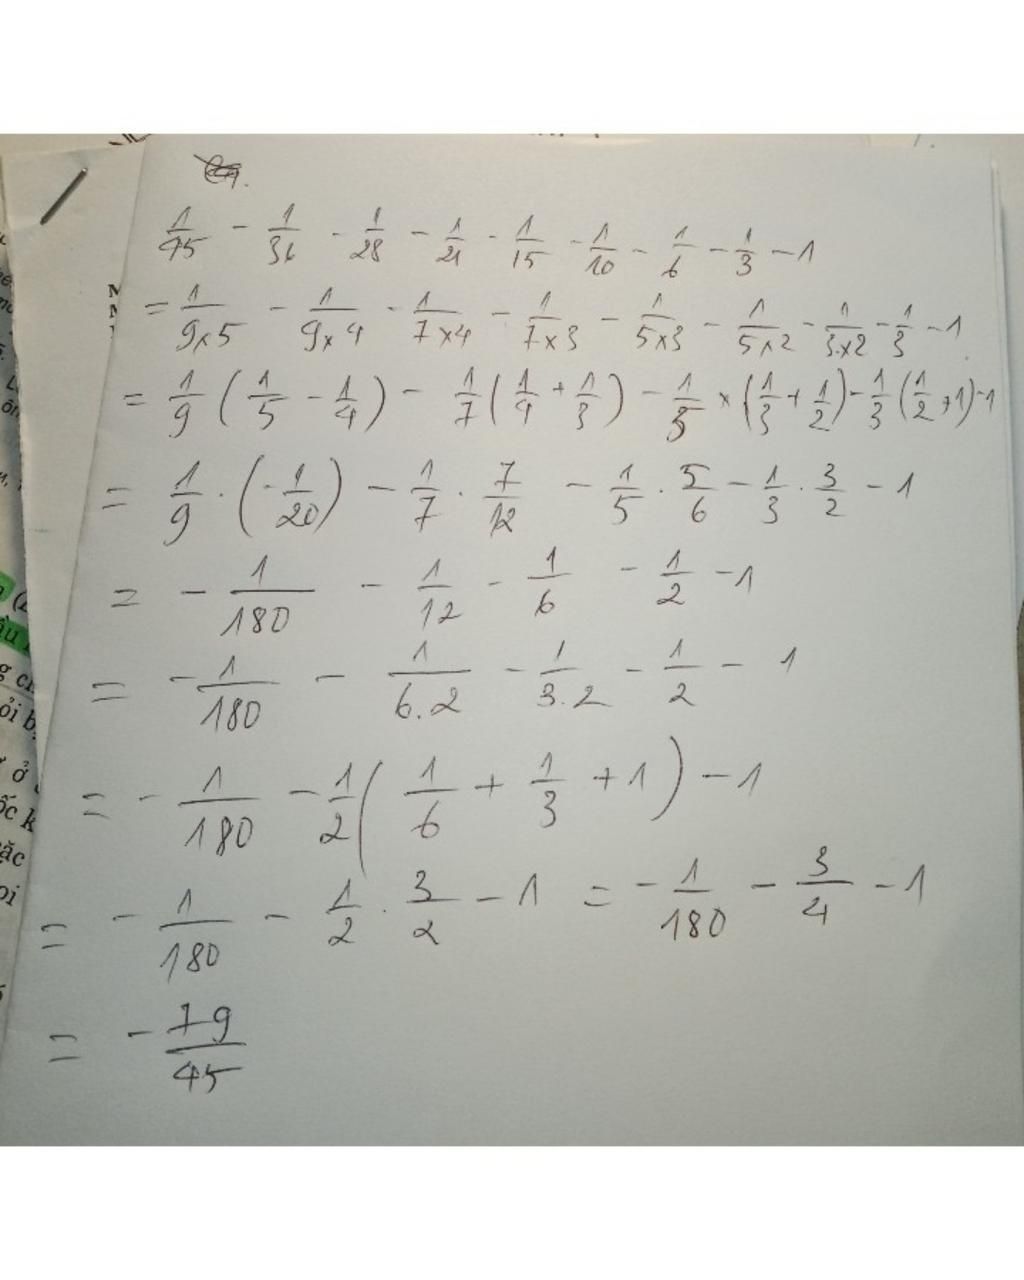 1/45 - 1/36 - 1/28 - 1/21 - 1/15 - 1/10 - 1/6 - 1/3 - 1
= 1/9x5 - 1/9x4 - 1/7x4 - 1/7x3 - 1/5x3 - 1/5x2 - 1/3x2 - 1/3 - 1
= 1/9 (1/5 - 1/4) - 1/7 (1/4 + 1/3) - 1/5 x (1/3 + 1/2) - 1/3 (1/2 + 1) - 1
= 1/9 . (-1/20) - 1/7 . 7/12 - 1/5 . 5/6 - 1/3 . 3/2 - 1
= - 1/180 - 1/12 - 1/6 - 1/2 - 1
= - 1/180 - 1/6.2 - 1/3.2 - 1/2 - 1
= - 1/180 - 1/2 ( 1/6 + 1/3 + 1 ) - 1
= - 1/180 - 1/2 . 3/2 - 1 = - 1/180 - 3/4 - 1
= - 79/45